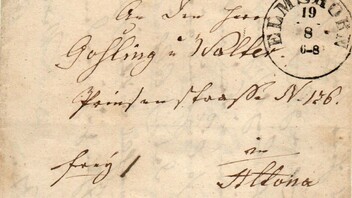 An Den Herrn
Gohling u Walter
Prinsen straasse N. 126.
frey
in
Altona
ELMSHORN
19
8
6-8